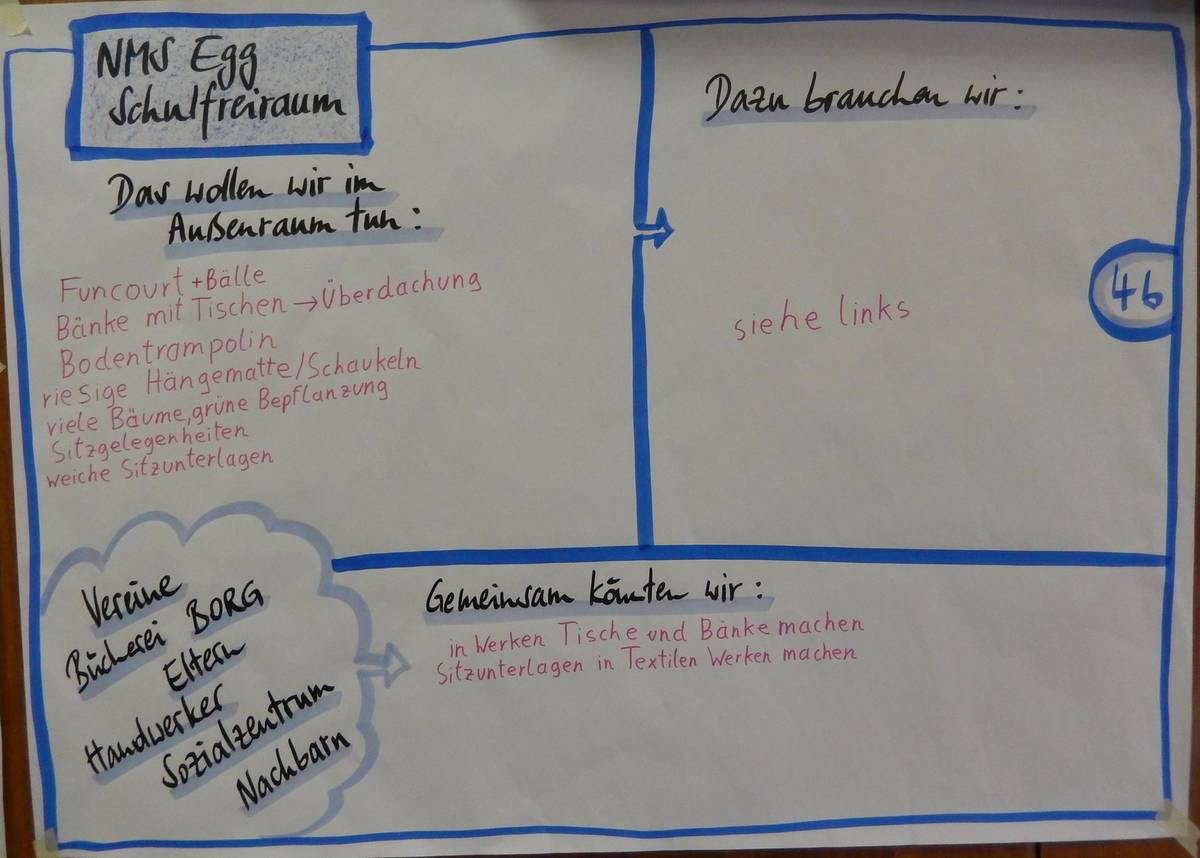 NMS Egg
Schulfreiraum
Das wollen wir im
Außenraum tun:
Funcourt + Bälle
Bänke mit Tischen → Überdachung
Bodentrampolin
riesige Hängematte/Schaukeln
viele Bäume, grüne Bepflanzung
Sitzgelegenheiten
weiche Sitzunterlagen
Dazu brauchen wir:
siehe links
46
Vereine
Bücherei BORG
Eltern
Handwerker
Sozialzentrum
Nachbarn
Gemeinsam könnten wir:
in Werken Tische und Bänke machen
Sitzunterlagen in Textilen Werken machen